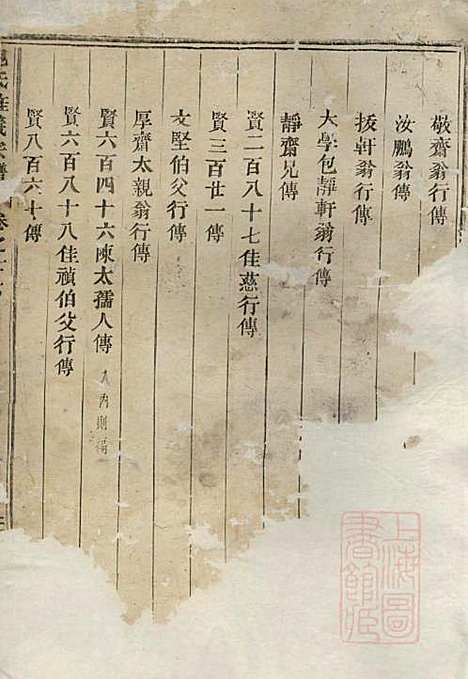 敬齋翁行傳
汝鵬翁行傳
拔軒翁行傳
大學包靜軒翁行傳
靜齋兄傳
賢二百八十七佳慈行傳
賢三百廿一傳
文堅伯父行傳
厚齋太親翁行傳
賢六百四十六陳太孺人傳 入內則
賢六百八十八佳禎伯父行傳
賢八百六十傳
氏 宗譜 卷之
上海圖書館